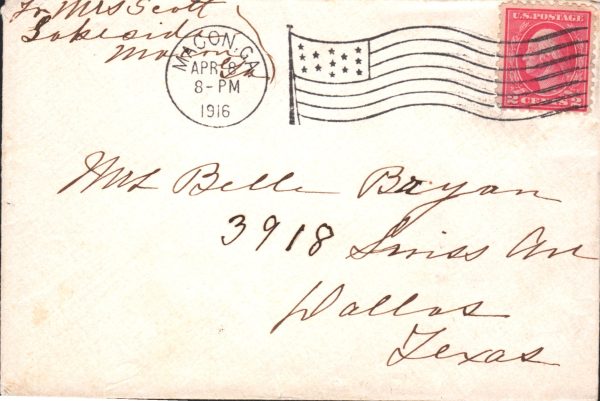 Fr Mrs Scott
Lakeside
Macon Ga
MACON, GA.
APR 8
8-PM
1916
U.S. POSTAGE
2 CENTS 2
Mrs Belle Bryan
3918 Swiss Ave
Dallas
Texas